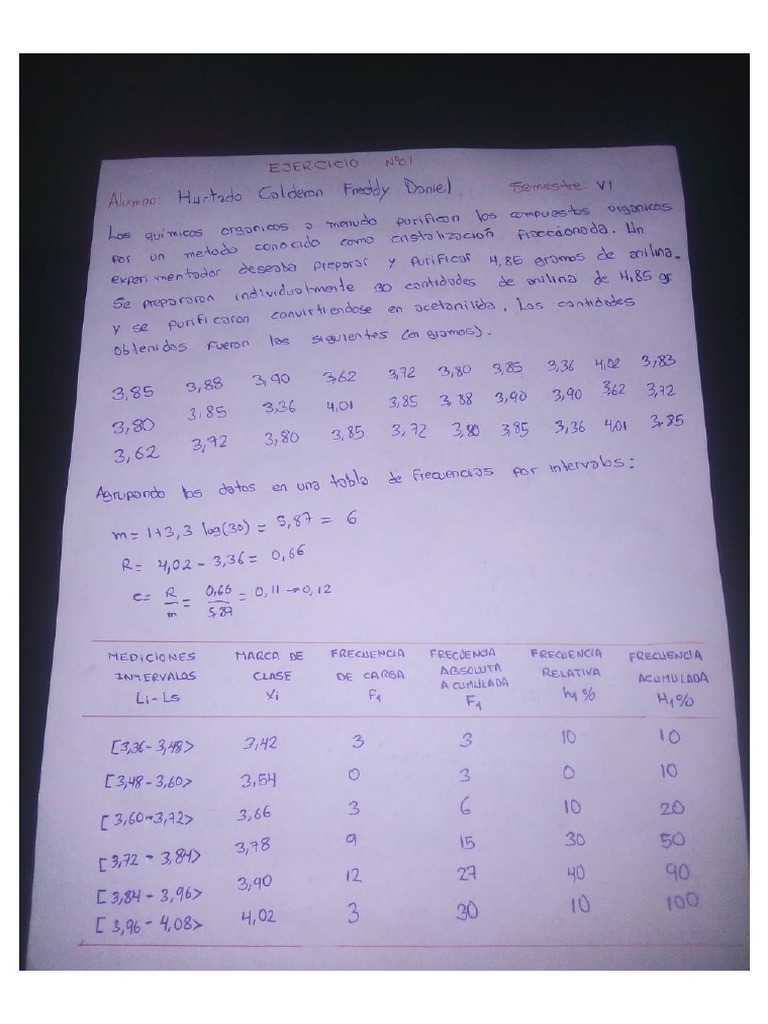 EJERCICIO Nº01
Alumno: Hurtado Calderon Freddy Daniel Semestre: VI
Los químicos organicos a menudo purifican los compuestos organicos
por un metodo conocido como cristalización fraccionada. Un
experimentador deseaba preparar y purificar 4,85 gramos de anilina.
Se prepararon individualmente 30 cantidades de anilina de 4,85 gr
y se purificaron convirtiendose en acetanilida. Las cantidades
obtenidas fueron las siguientes (en gramos).
3,85 3,88 3,90 3,62 3,72 3,80 3,85 3,36 4,02 3,83
3,80 3,85 3,36 4,01 3,85 3,88 3,90 3,90 3,62 3,72
3,62 3,72 3,80 3,85 3,72 3,80 3,85 3,36 4,01 3,85
Agrupando los datos en una tabla de frecuencias por intervalos:
m= 1+3,3 log(30) = 5,87 = 6
R= 4,02 - 3,36 = 0,66
c= R/m = 0,66/5,87 = 0,11 → 0,12
MEDICIONES INTERVALOS Li-Ls MARCA DE CLASE Xi FRECUENCIA DE CARGA F1 FRECUENCIA ABSOLUTA ACUMULADA F1 FRECUENCIA RELATIVA h1% FRECUENCIA ACUMULADA H1%
[3,36 - 3,48> 3,42 3 3 10 10
[3,48 - 3,60> 3,54 0 3 0 10
[3,60 - 3,72> 3,66 3 6 10 20
[3,72 - 3,84> 3,78 9 15 30 50
[3,84 - 3,96> 3,90 12 27 40 90
[3,96 - 4,08> 4,02 3 30 10 100